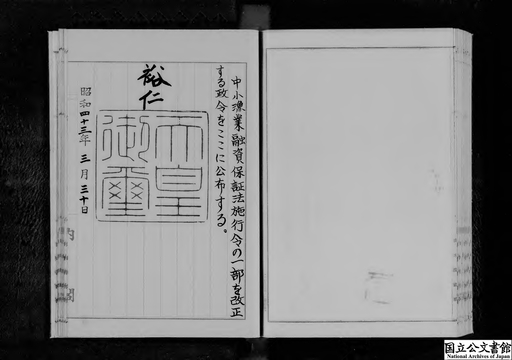 中小漁業融資保証法施行令の一部を改正
する政令をここに公布する。
裕仁
天皇
御璽
昭和四十三年三月三十日
内閣
国立公文書館
National Archives of Japan